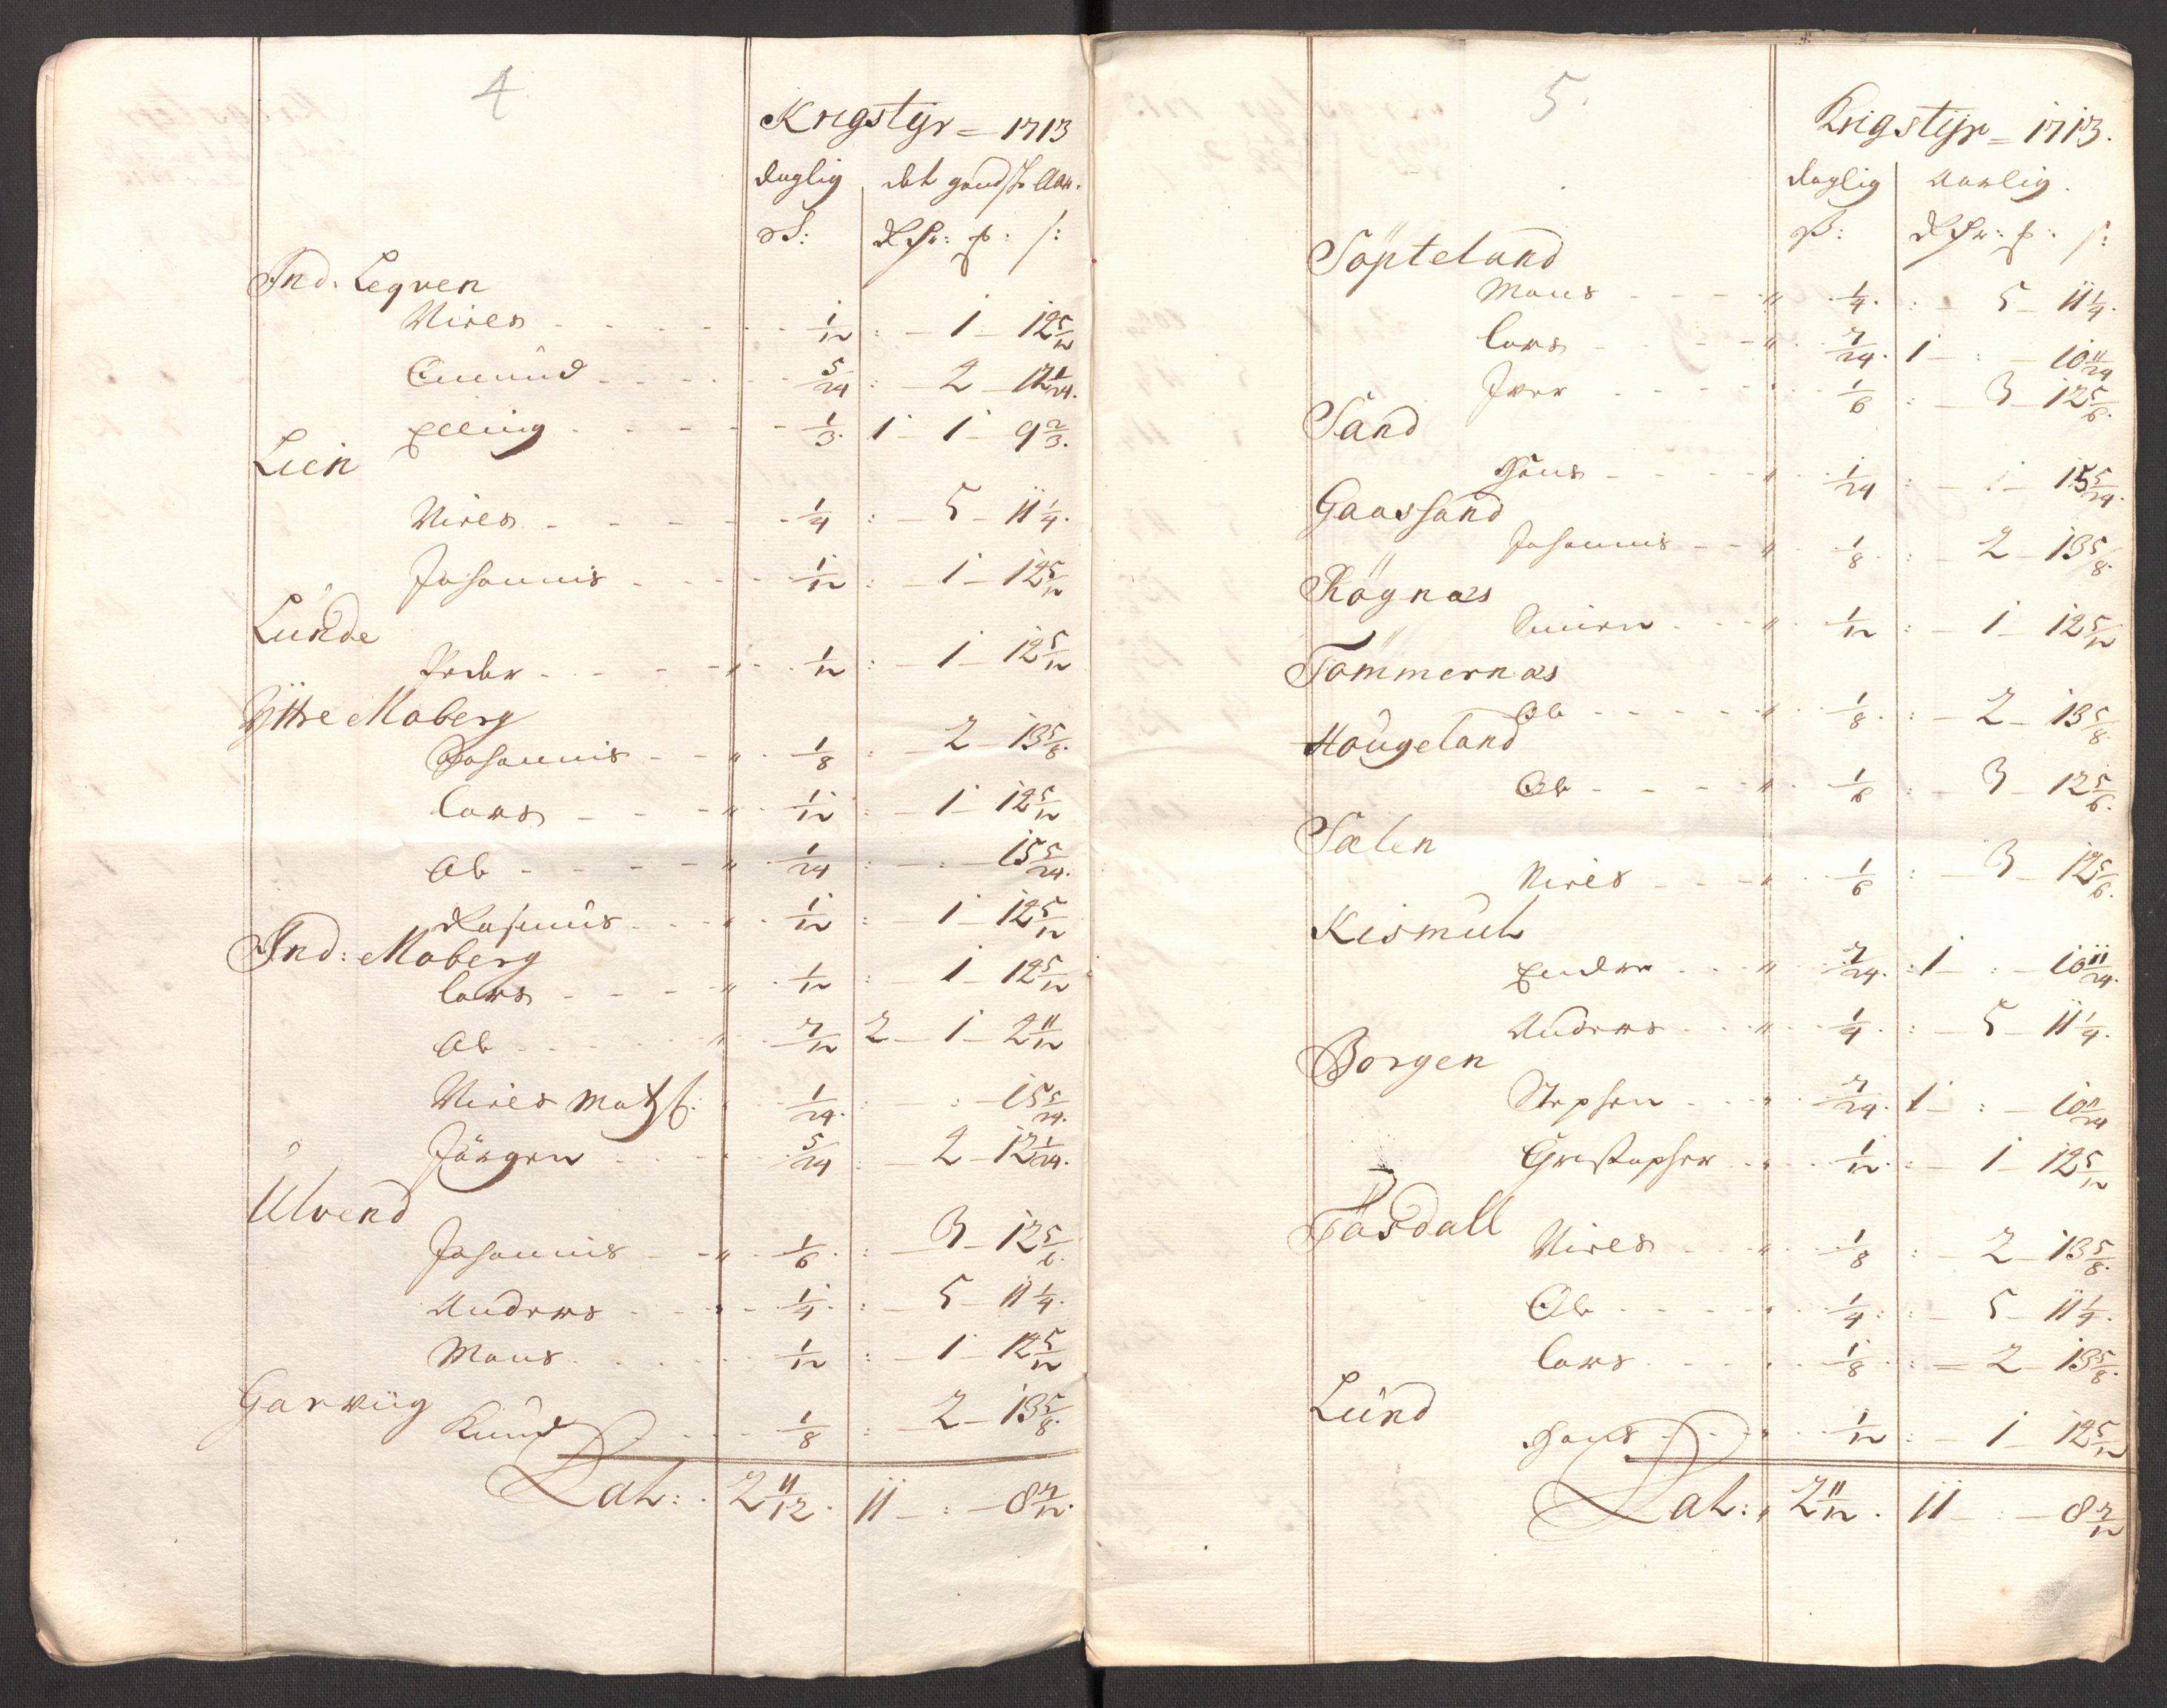 4
Krigstÿr = 1713
daglig det gandske Aar.
ß: dlr: : ſ:
Ind. Leqven
Nires 1/12 : 1 12 5/12
Amund 5/24 : 2 12 1/24.
Elling 1/3. 1 1 9 2/3.
Lien
Nires 1/4 : 5 11 1/4.
Johannis 1/12 : 1 12 5/12
Lunde
Peder 1/12 : 1 12 5/12
Ÿttre Moberg
Johannis 1/8 : 2 13 5/8.
Lars 1/12 : 1 12 5/12
Ole 1/24 : : 15 5/24.
Rasmus 1/12 : 1 12 5/12
Ind: Moberg
Lars 1/12 : 1 12 5/12
Ole 7/12 2 1 2 11/12
Nires Matzß: 1/24. : 15 5/24.
Jörgen 5/24 : 2 12 1/24.
Ulvend
Johannis 1/6. : 3 12 5/6.
Anders 1/4. : 5 11 1/4.
Mons 1/12 : 1 12 5/12
Garviig
Knud 1/8 : 2 13 5/8.
Lat: 2 11/12. 11 : 8 7/12.
5.
Krigstÿr = 1713.
daglig Aarlig.
ß: dlr: : ſ:
Söpteland
Mons 1/4. : 5 11 1/4.
Lars 7/24. 1 : 10 11/24
Iver 1/6 : 3 12 5/6.
Sand
Hans 1/24 : 15 5/24.
Gaassand
Johannis 1/8. : 2 13 5/8.
Rögnæs
1/12 : 1 12 5/12
Tömmernæs
Ole 1/8. : 2 13 5/8
Hougeland
Ole 1/6 : 3 12 5/6.
Sælen
Nires 1/6 : 3 12 5/6.
Kismul
Endre 7/24. :1 : 10 11/24.
Anders 1/4. : 5 11 1/4.
Borgen
Stephen 7/24. 1 : 10 11/24
Christopher 1/12. : 1 12 5/12
Tösdall
Nires 1/8 : 2 13 5/8.
Ole 1/4. : 5 11 1/4.
Lars 1/8. : 2 13 5/8.
Lund
Hans 1/12 : 1 12 5/12
Lat: 2 11/12. 11 : 8 7/12